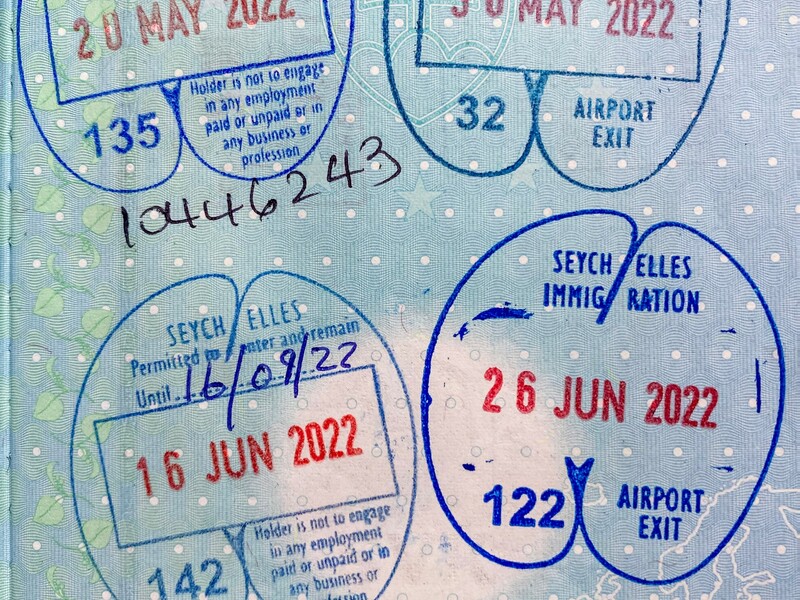 20 MAY 2022
Holder is not to engage
in any employment
paid or unpaid or in
any business or
profession
135
30 MAY 2022
32
AIRPORT
EXIT
10446243
SEYCHELLES
Permitted to enter and remain
Until 16/09/22
16 JUN 2022
142
Holder is not to engage
in any employment
paid or unpaid or in
any business or
profession
SEYCHELLES
IMMIGRATION
26 JUN 2022
122
AIRPORT
EXIT